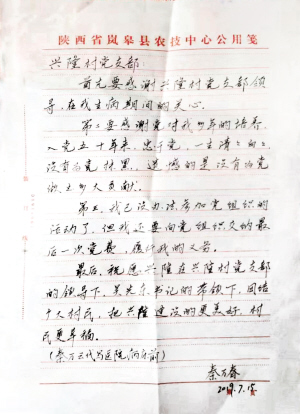 陕西省岚皋县农技中心公用笺
兴隆村党支部:
首先要感谢兴隆村党支部领
导,在我生病期间的关心。
第二要感谢党对我多年的培养,
入党五十年来,忠于党,一生清清白白,
没有为党抹黑,遗憾的是没有为党
做出多大贡献。
第三,我已没办法参加党组织的
活动了,但我还要向党组织交纳最
后一次党费,履行我的义务。
最后,祝愿兴隆在兴隆村党支部
的领导下,吴关东书记的带领下,团结
广大村民,把兴隆建设的更美好,村
民更幸福。
(秦 代写医院病床前)
秦万春
2019.7.15